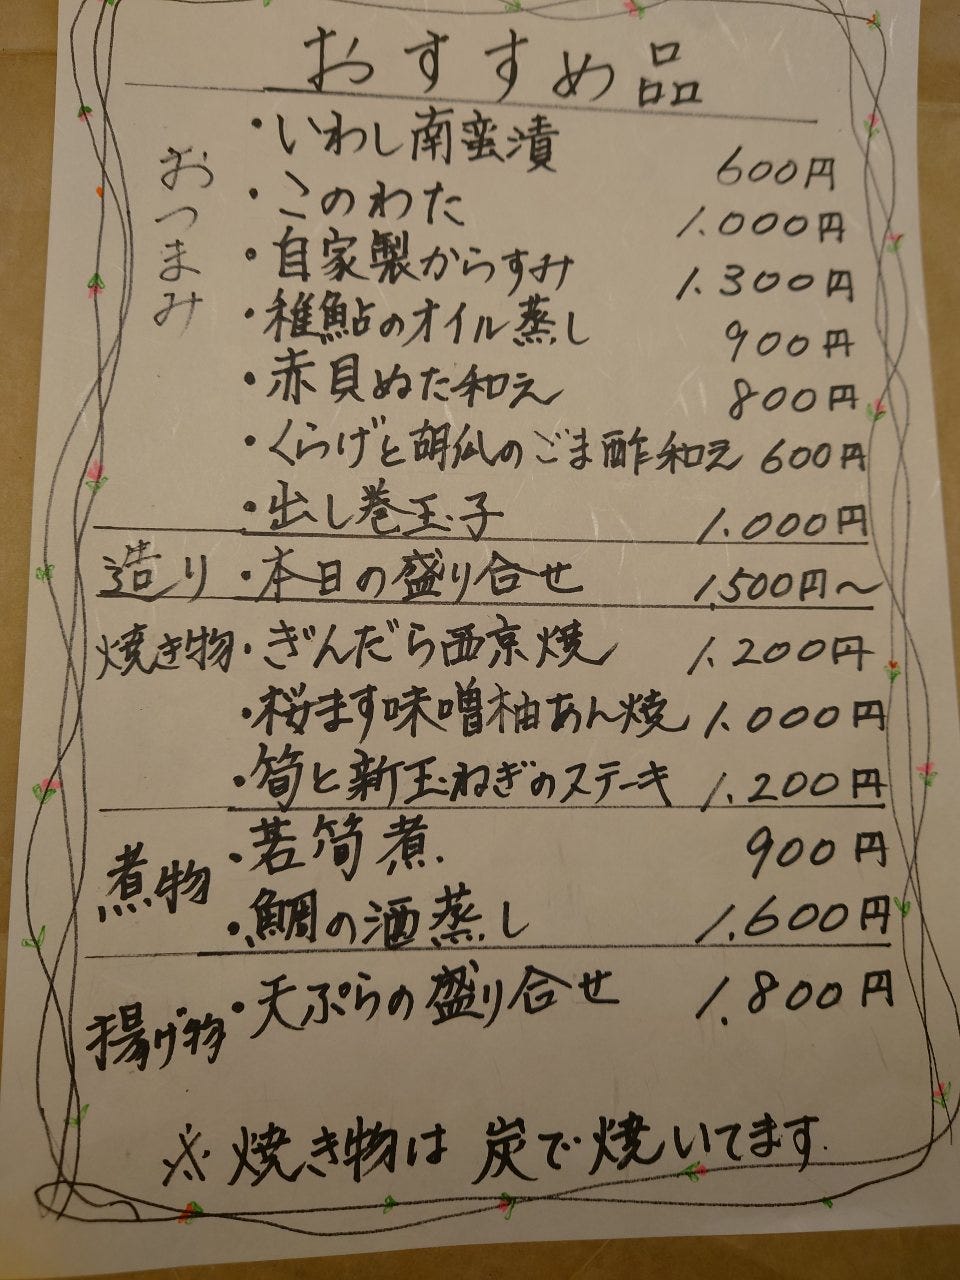 おすすめ品
おつまみ
・いわし南蛮漬 600円
・このわた 1.000円
・自家製からすみ 1.300円
・稚鮎のオイル蒸し 900円
・赤貝ぬた和え 800円
・くらげと胡瓜のごま酢和え 600円
・出し巻玉子 1.000円
造り ・本日の盛り合せ 1,500円～
焼き物 ・ぎんだら西京焼 1.200円
・桜ます味噌柚あん焼 1.000円
・筍と新玉ねぎのステーキ 1.200円
煮物 ・若筍煮 900円
・鯛の酒蒸し 1.600円
揚げ物 ・天ぷらの盛り合せ 1.800円
※焼き物は 炭で焼いてます.